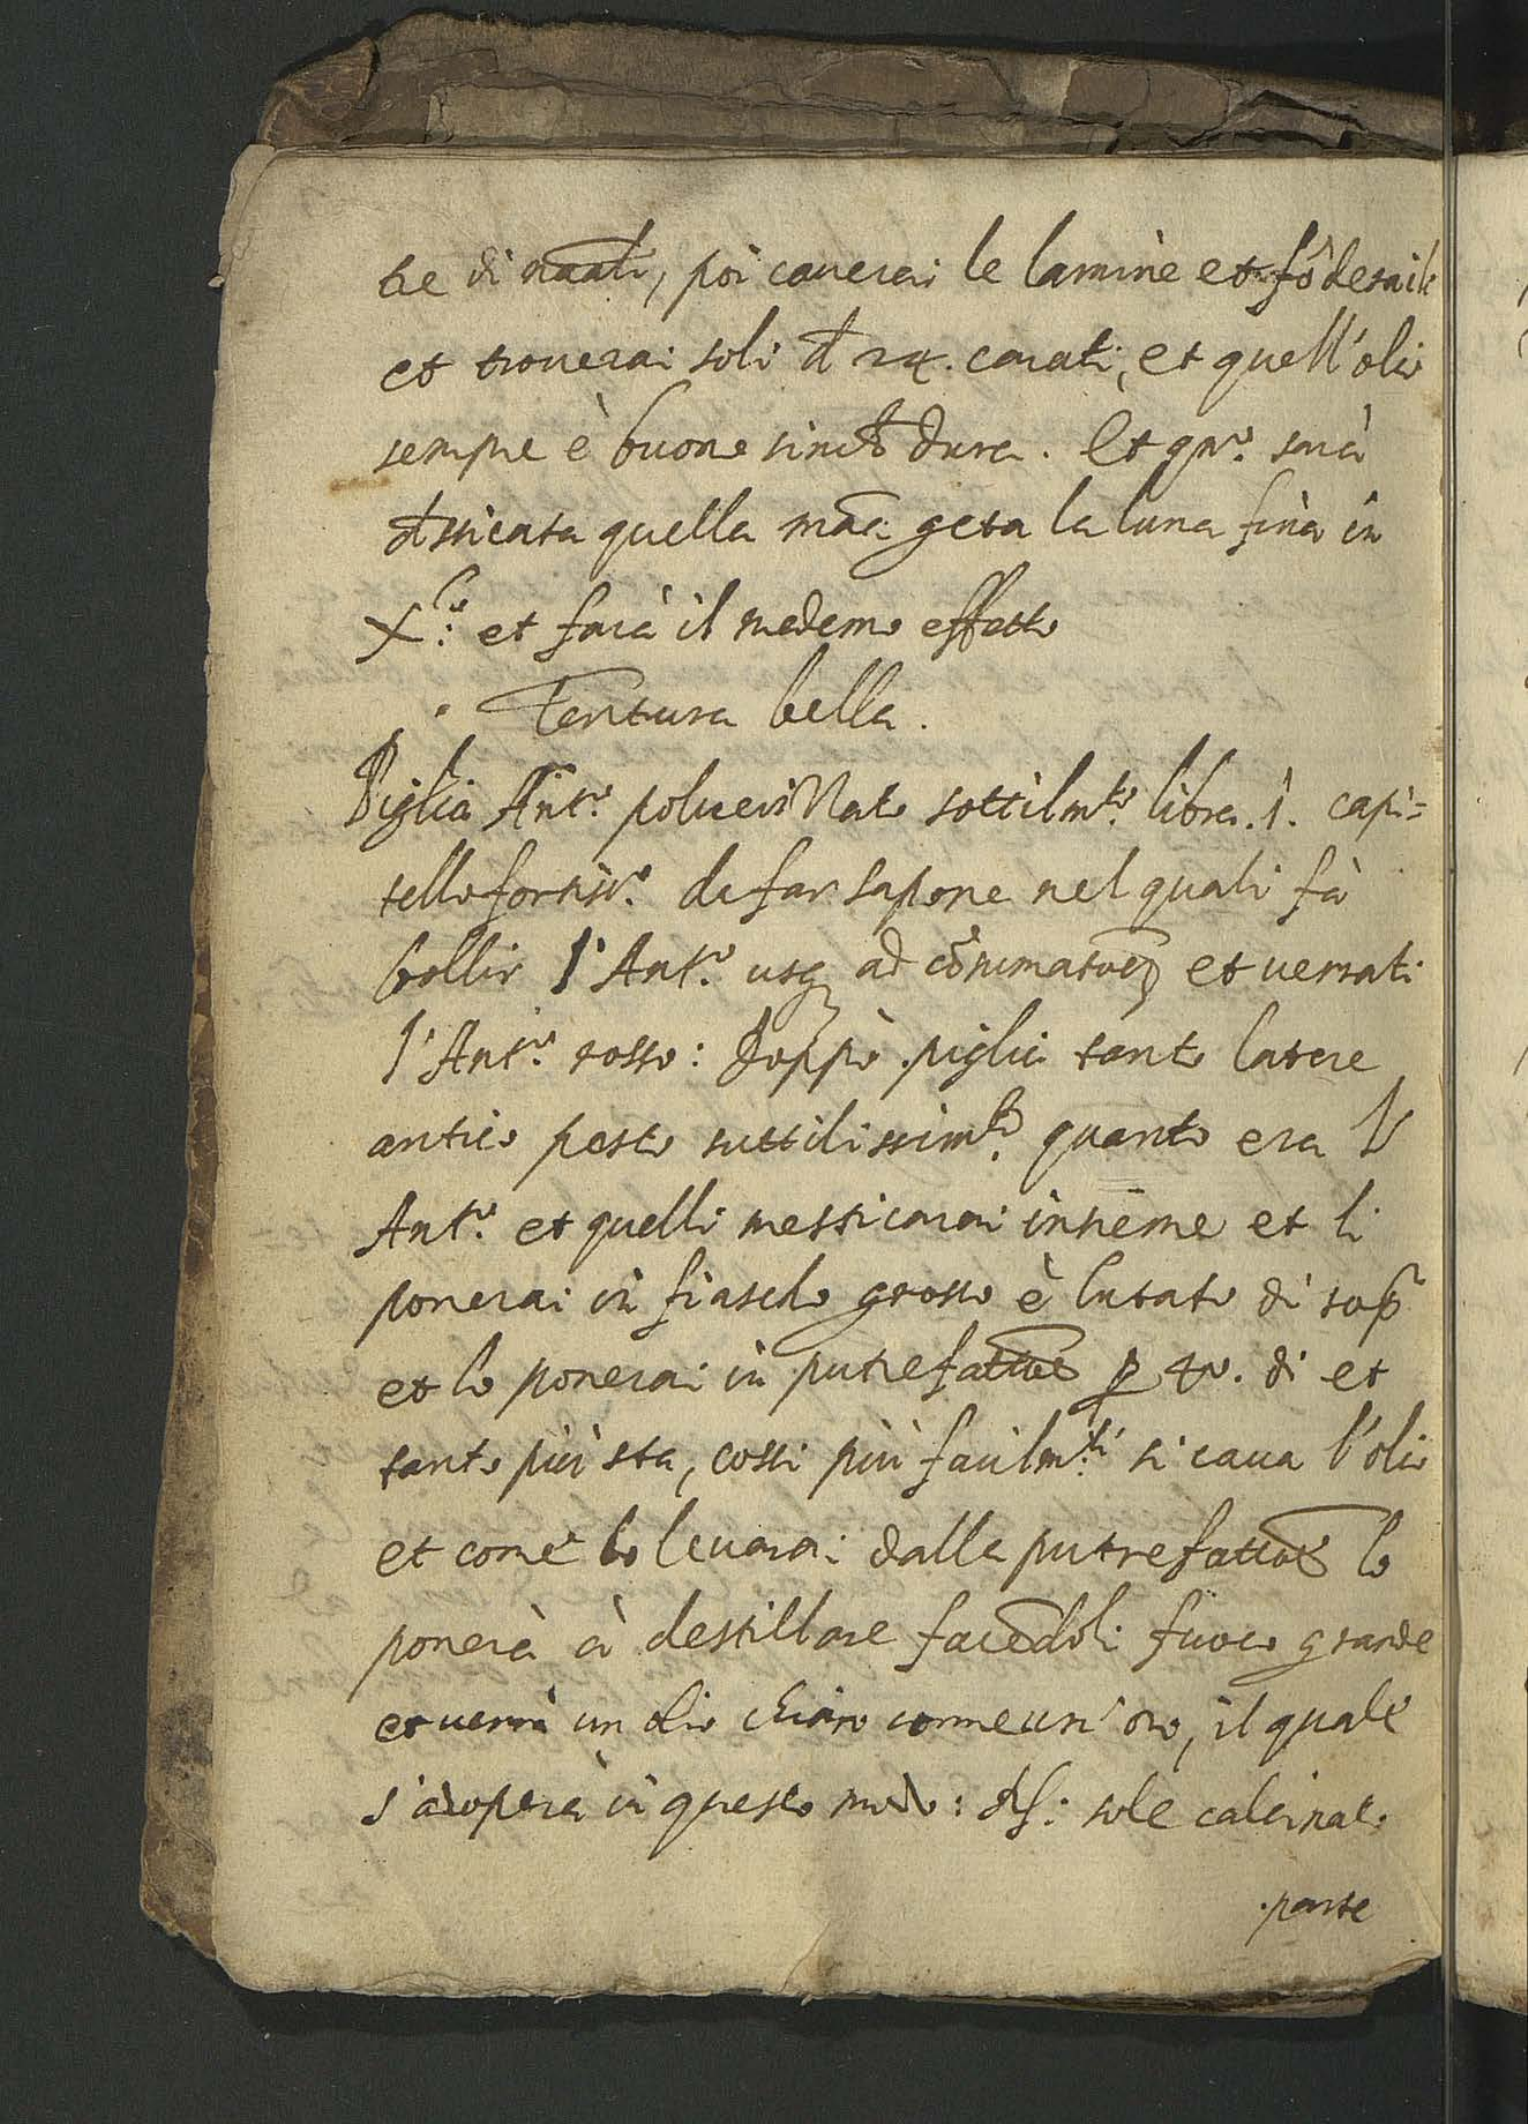 te di naali, poi cauerai le lamine et fõderaile
et trouerai soli đ 24. carati, et quell'olio
sempre è buono sinch dura. Et qnº. sarà
dssicata quella mãa geta la luna fina in
Xº: et farà il medemo effetto
. Tentura bella.
Piglia Antº. poluerizzato sottilmte. libra .1. capi=
tello fortisº. da far sapone nel quali fà
bollir l'Antº. usq ad cõsumatoẽ et uersati
l'Antº. rosso: doppò piglia tanto latere
antico pesto suttilissimte. quanto era l'
Antº. et quelli messicarai insieme et li
ponerai in fiasclo grosso è lutato di sop
et lo ponerai in putrefattoẽ p 40. di et
tanto più sta, cossi più facilmti. si caua l'olio
et come lo leuarai dalla putrefattoẽ lo
ponerà à destillare facẽdoli fuoco grande
et uerrà un olio chiaro comme un' oro, il quale
s'adopera in questo modo: sole calcinato
.parte